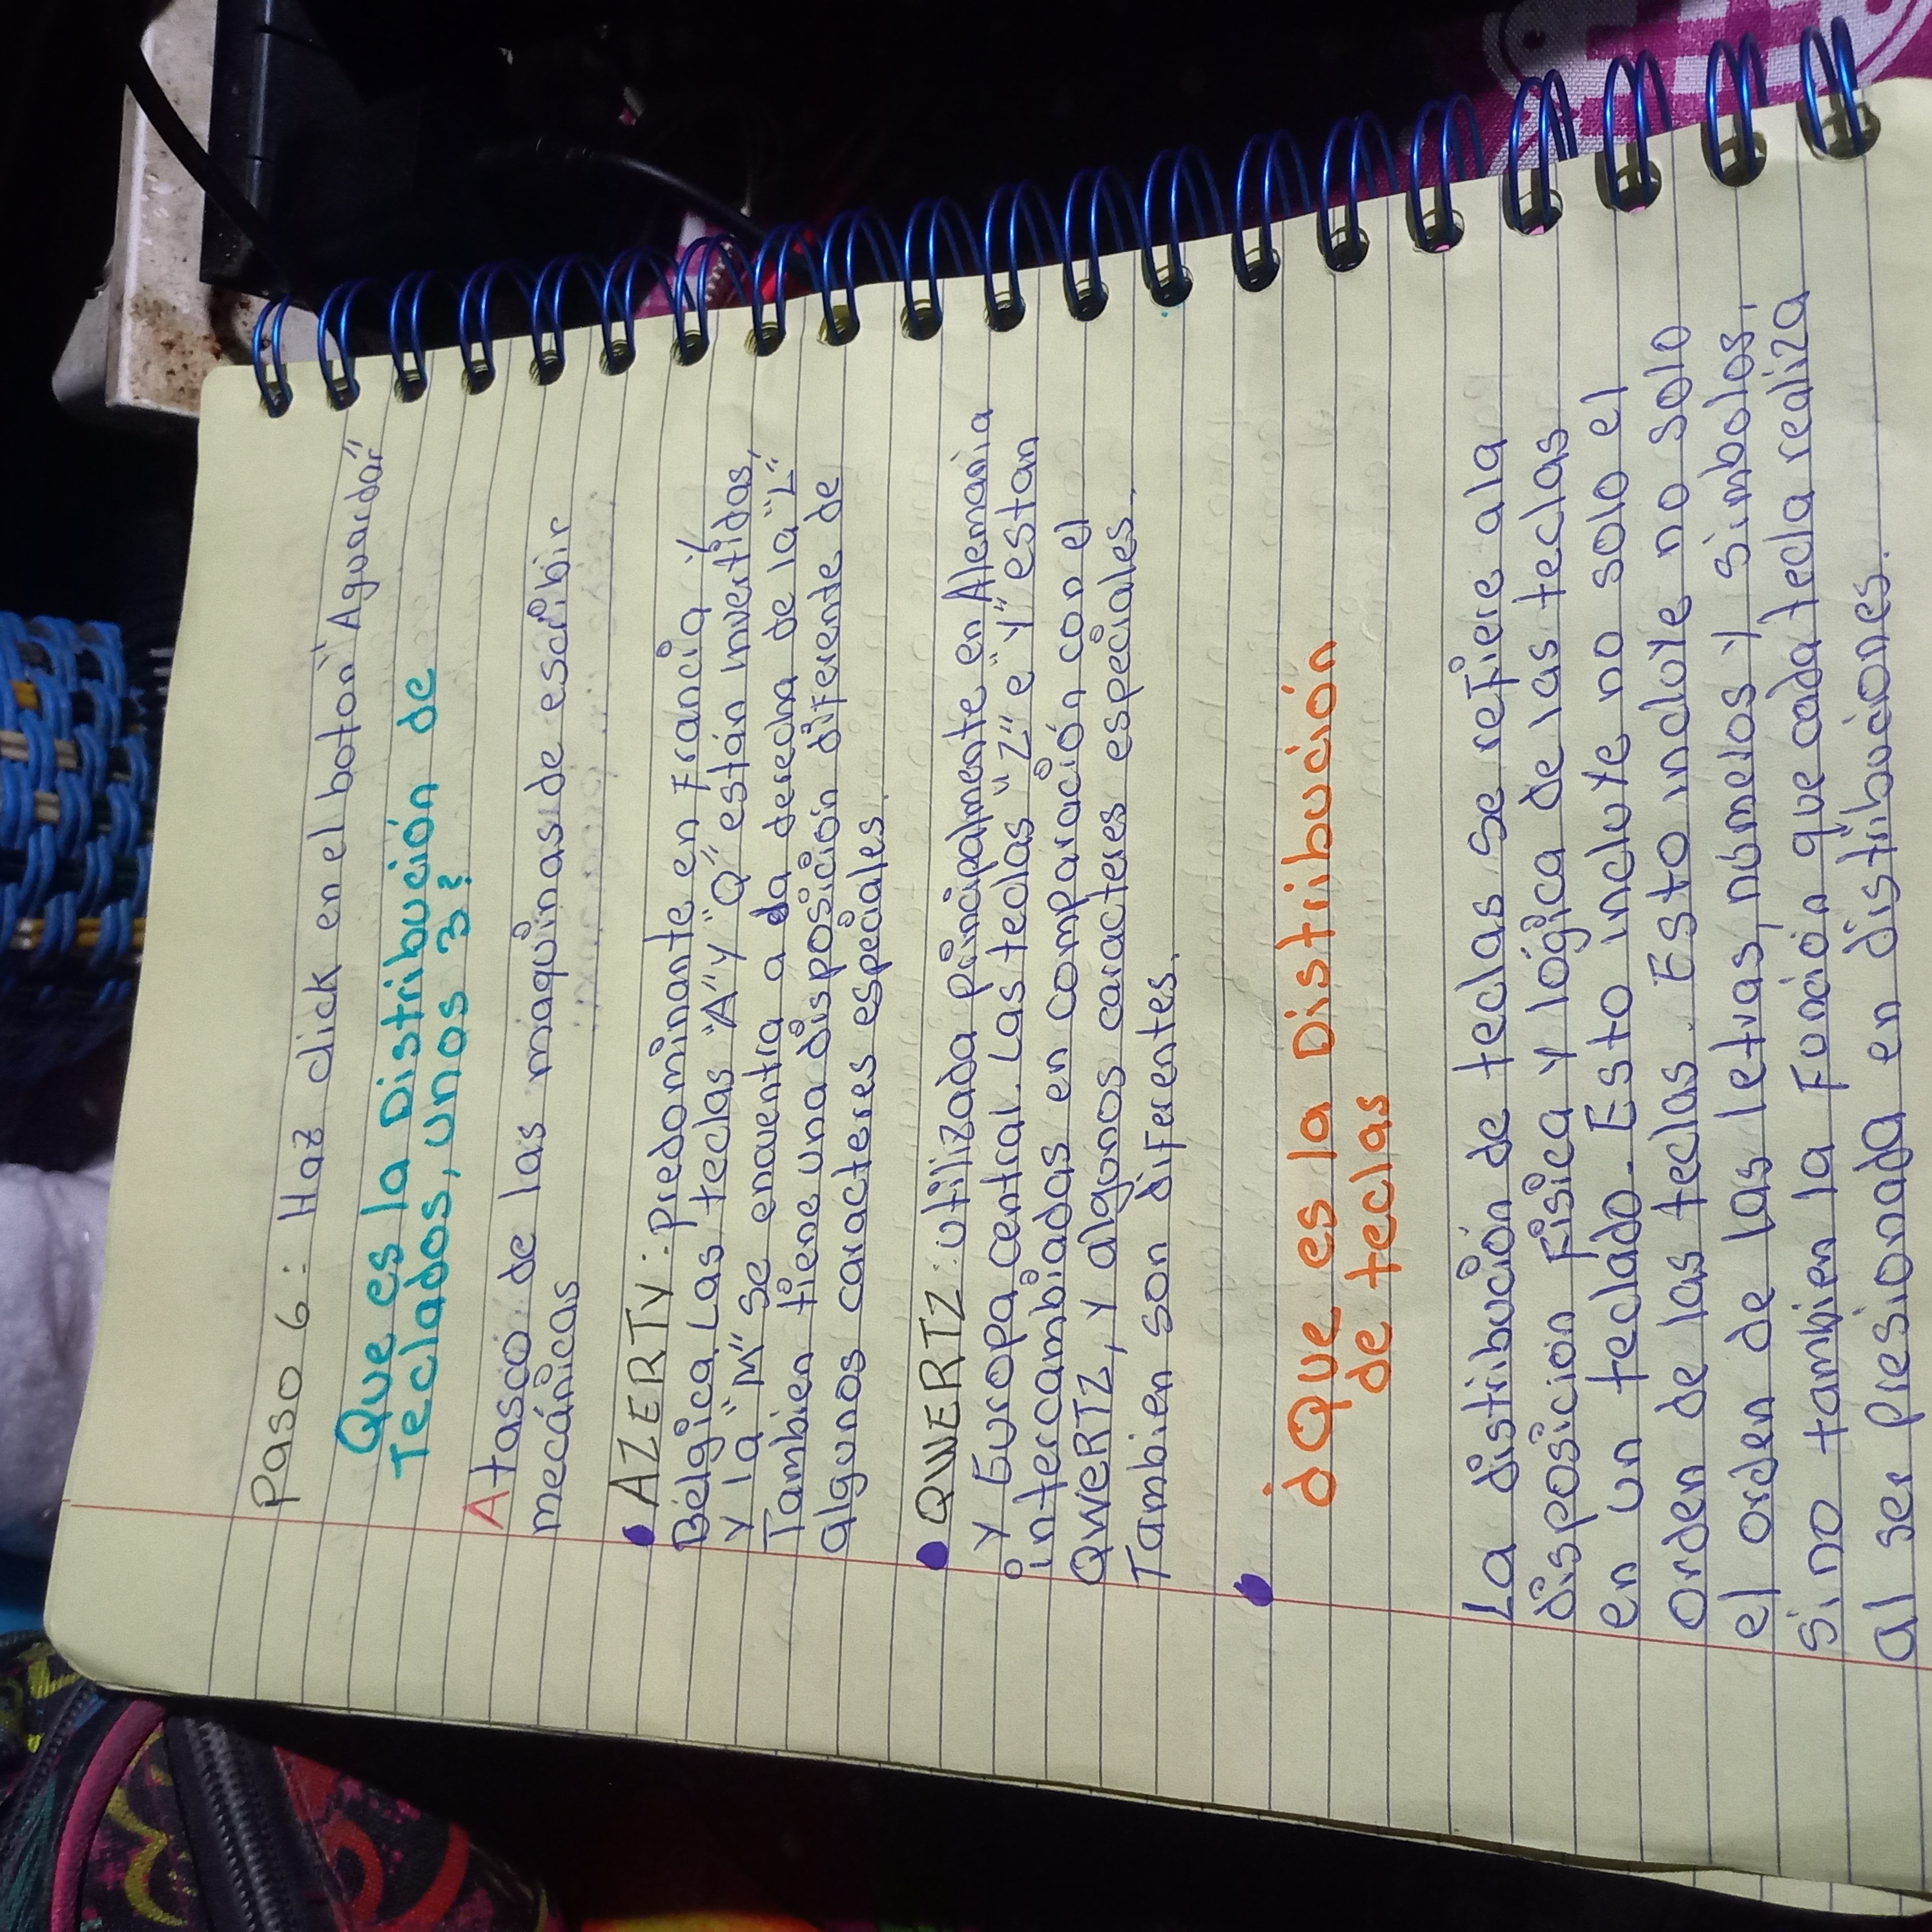 Paso 6: Haz click en el boton "Aguardar"
Que es la Distribución de
Teclados, unos 3?
Atasco de las maquinas de escribir
mecánicas
• AZERTY: Predominante en Francia y
Bélgica. Las teclas "A" y "Q" están invertidas,
y la "M" se encuentra a la derecha de la "L"
Tambien tiene una disposición diferente de
algunos caracteres especiales.
• QWERTZ: utilizada principalmente en Alemania
y Europa central. Las teclas "Z" e "Y" estan
intercambiadas en comparación con el
QWERTZ, y algunos caracteres especiales.
Tambien son diferentes.
•
¿Que es la Distribución
de teclas
La distribución de teclas se refiere ala
disposicion Fisica y lógica de las teclas
en un teclado. Esto incluye no solo el
orden de las teclas. Esto incluye no solo
el orden de las letras, números y simbolos,
sino tambien la Función que cada tecla realiza
al ser presionada en distribuciones.